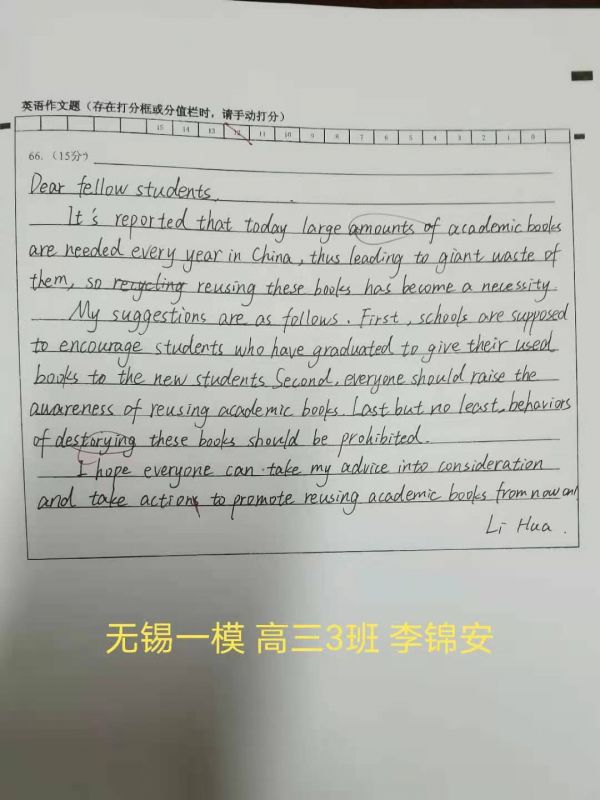 英语作文题（存在打分框或分值栏时，请手动打分）
15 14 13 12 11 10 9 8 7 6 5 4 3 2 1 0
66.（15分）
Dear fellow students,
It's reported that today large amounts of academic books
are needed every year in China, thus leading to giant waste of
them, so recycling reusing these books has become a necessity.
My suggestions are as follows. First, schools are supposed
to encourage students who have graduated to give their used
books to the new students. Second, everyone should raise the
awareness of reusing academic books. Last but no least, behaviors
of destorying these books should be prohibited.
I hope everyone can take my advice into consideration
and take actions to promote reusing academic books from now on!
Li Hua.
无锡一模 高三3班 李锦安